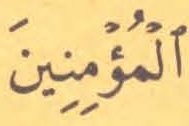 ٱلْمُؤْمِنِينَ